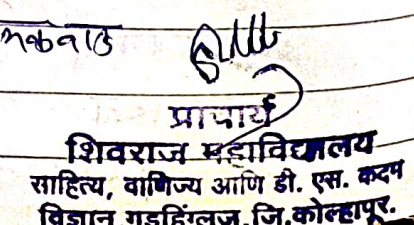 प्राचार्य
शिवराज महाविद्यालय
साहित्य, वाणिज्य आणि डी. एस. कदम
विज्ञान,गडहिंग्लज,जि.कोल्हापूर.